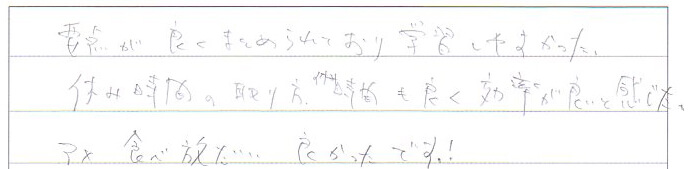 要点が良くまとめられており学習しやすかった。
休み時間の取り方、時間も良く効率が良いと感じた。
アメ食べ放だい 良かったです!!